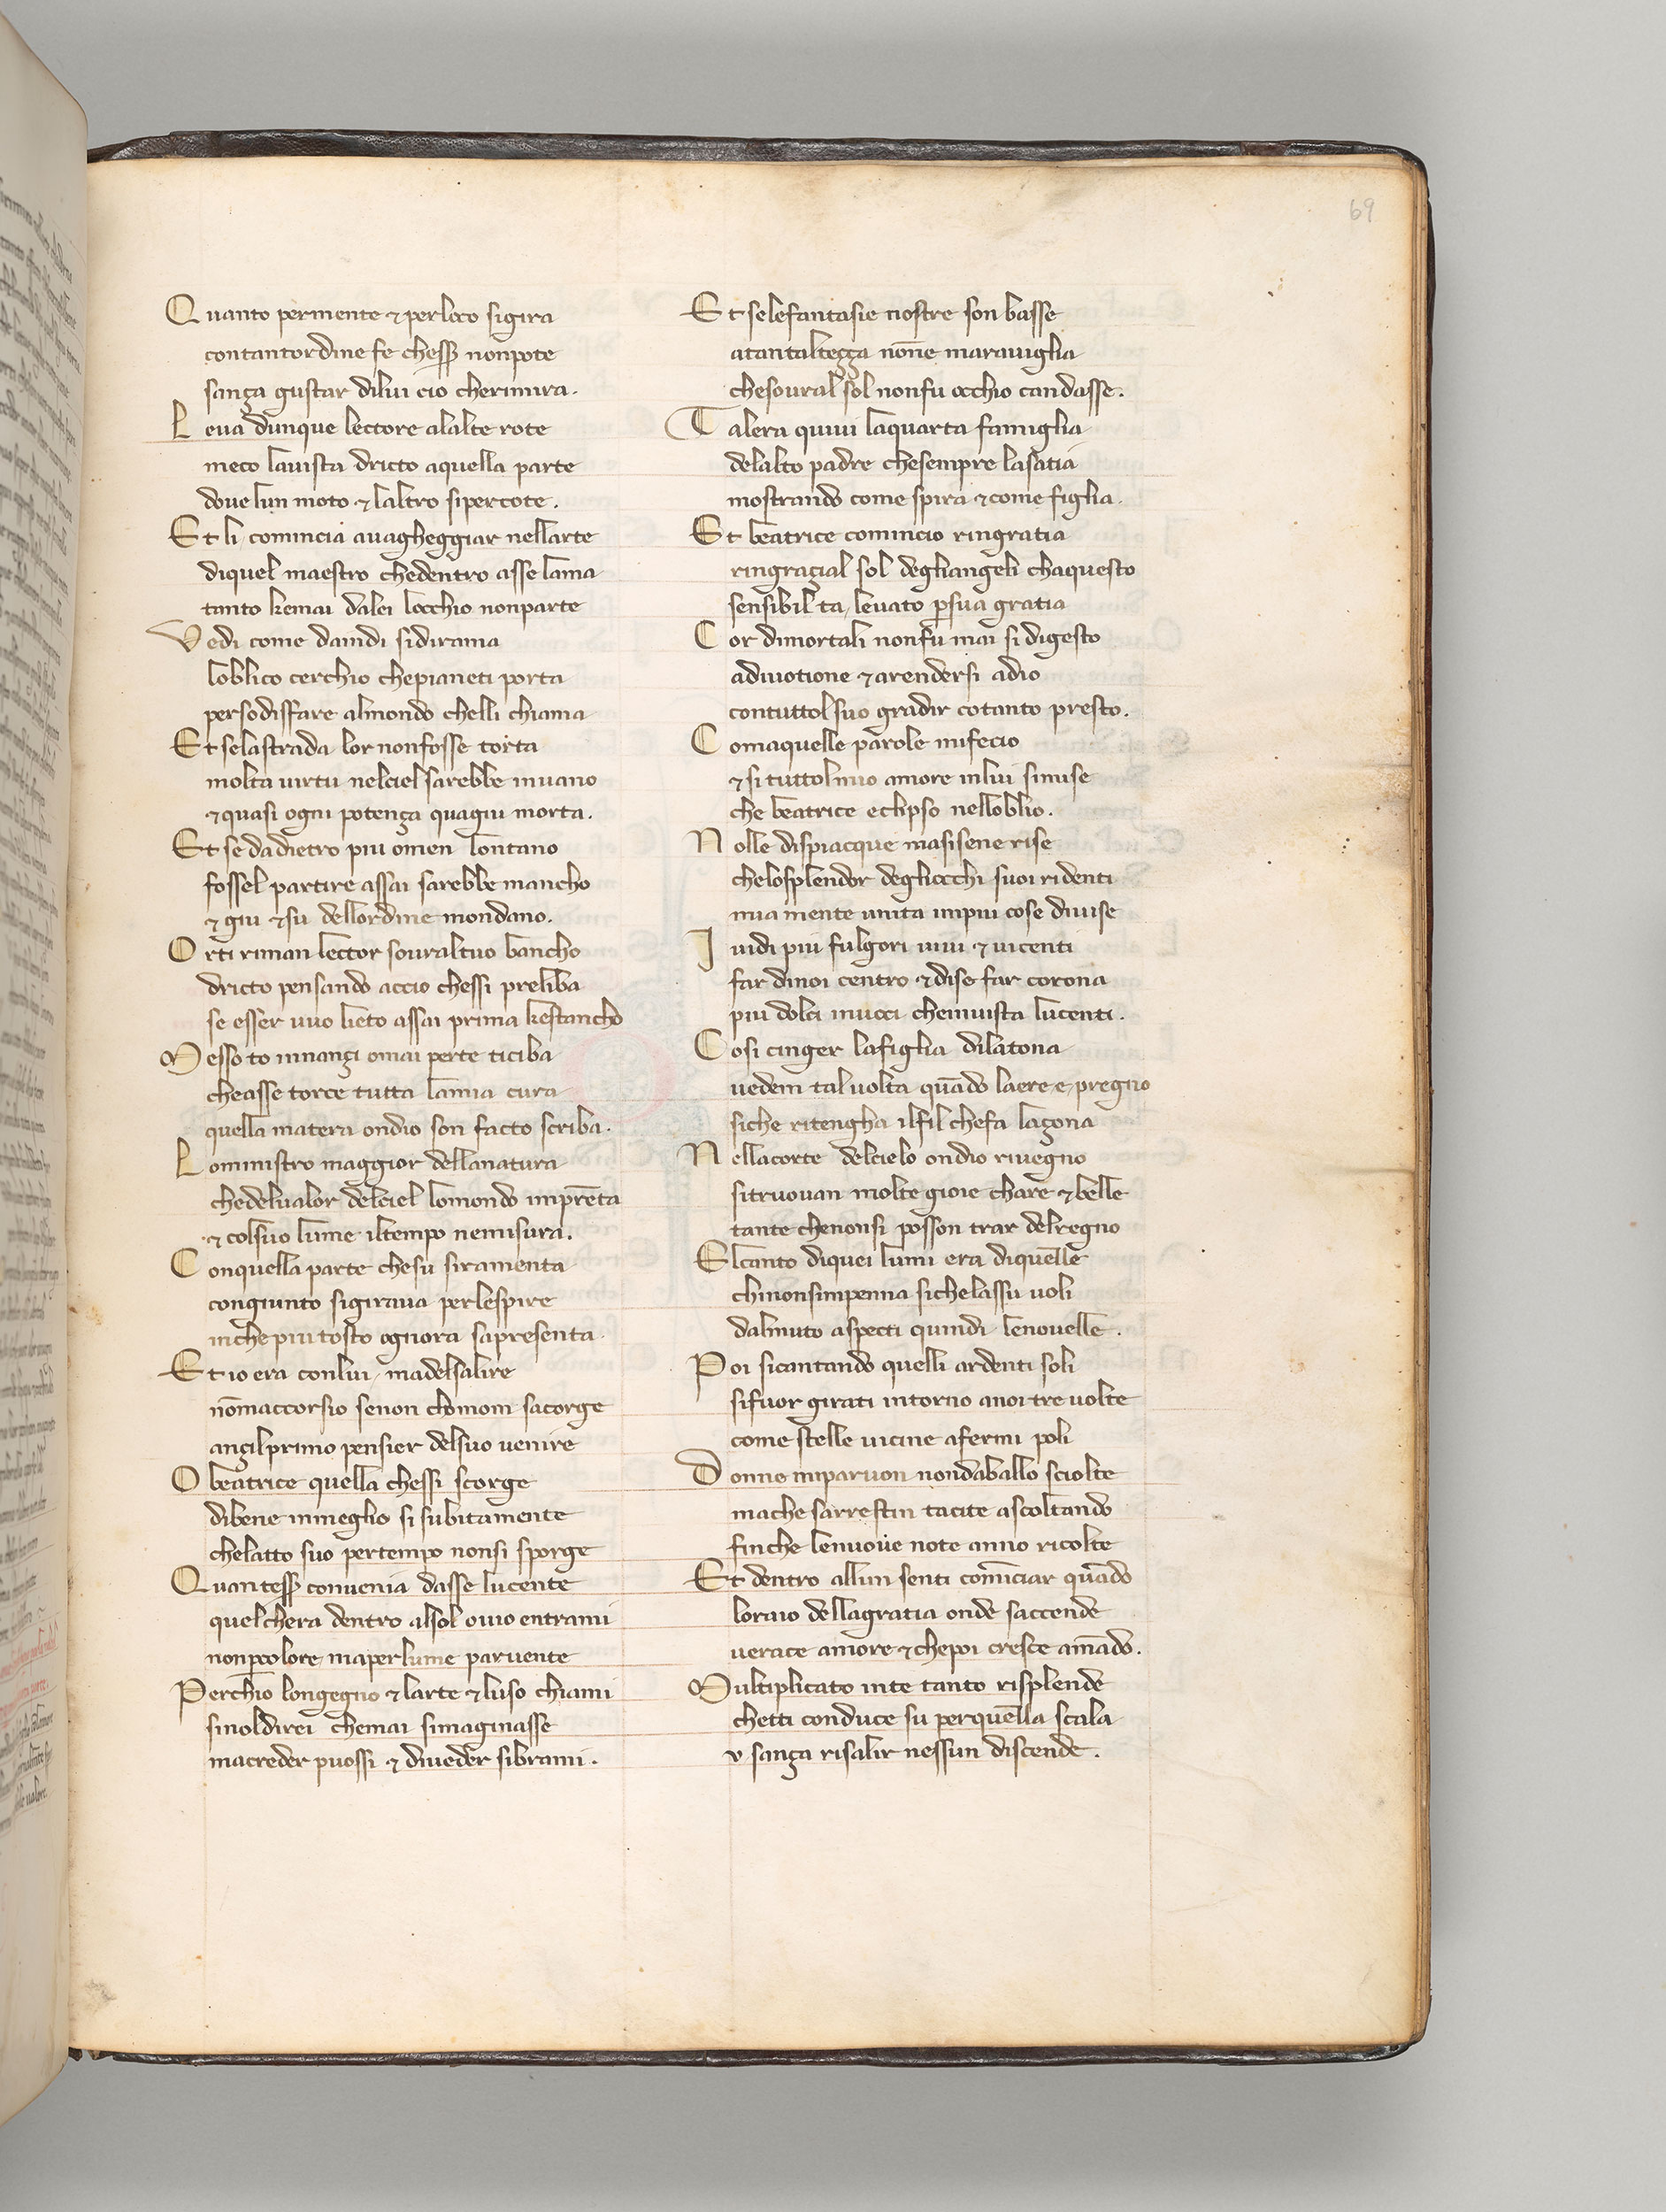 69
Quanto permente & perloco sigira
contantordine fe chess nonpote
sança gustar dilui cio cherimira.
Leua dunque lectore alalte rote
meco lauista dricto aquella parte
doue lun moto & laltro sipercote.
Et li comincia auagheggiar nellarte
diquel maestro chedentro asse lama
tanto kemai dalei locchio nonparte
Vedi come daindi sidirama
loblico cerchio chepianeti porta
persodisfare almondo chelli chiama
Et selastrada lor nonfosse torta
molta uirtu nelciel sarebbe inuano
& quasi ogni potença quagiu morta.
Et se dadietro piu omen lontano
fossel partire assai sarebbe mancho
& giu & su dellordine mondano.
Orti riman lector souraltuo bancho
dricto pensando accio chessi preliba
se esser uuo lieto assai prima kestancho
Messo to innançi omai perte ticiba
cheasse torce tutta lamia cura
quella matera ondio son facto scriba.
Loministro maggior dellanatura
chedelualor delciel lomondo imprēta
& colsuo lume iltempo nemisura.
Conquella parte chesu siramenta
congiunto sigiraua perlespire
inchepiu tosto ognora sapresenta.
Et io era conlui, madelsalire
nōmaccorsio senon chomom sacorge
ançilprimo pensier delsuo uenire
O beatrice quella chessi scorge
dibene inmeglio si subitamente
chelatto suo pertempo nonsi sporge
Quantess conuenia dasse lucente
quelchera dentro alsol ouio entrami
nonpcolore, maperlume paruente
Perchio longegno & larte & luso chiami
sinoldirei chemai simaginasse
macreder puossi & diueder sibrami.
Et selefantasie nostre son basse
atantalteçça nonne marauiglia
chesoural sol nonfu occhio candasse.
Talera quiui laquarta famiglia
delalto padre chesempre lasatia
mostrando come spira & come figlia.
Et beatrice comincio ringratia
ringraçial sol degliangeli chaquesto
sensibil ta, leuato psua gratia
Cor dimortali nonfu mai si digesto
adiuotione & arendersi adio
contuttol suo gradir cotanto presto.
Comaquelle parole mifecio
& si tuttolmio amore inlui simise
che beatrice eclipso nelloblio.
Nolle dispiacque masisene rise
chelosplendor degliocchi suoi ridenti
mia mente unita inpiu cose diuise
I uidi piu fulgori uiui & uicenti
far dinoi centro & dise far corona
piu dolci inuoci cheinuista lucenti.
Cosi cinger lafiglia dilatona
uedem taluolta quādo laere e, pregno
siche ritengha ilfil chefa laçona
Nellacorte delcielo ondio riuegno
sitruouan molte gioie chare & belle
tante chenonsi posson trar delregno
Elcanto diquei lumi era diquelle
chinonsimpenna sichelassu uoli
dalmuto aspecti quindi lenouelle.
Poi sicantando quelli ardenti soli
sifuor girati intorno anoi tre uolte
come stelle uicine afermi poli
Donne miparuon nondaballo sciolte
mache sarrestin tacite ascoltando
finche lenuoue note anno ricolte
Et dentro allun senti comīciar quādo
loraio dellagratia onde saccende
uerace amore & chepoi cresce amādo.
Multiplicato inte tanto risplende
chetti conduce su perquella scala
v sança risalir nessun discende.